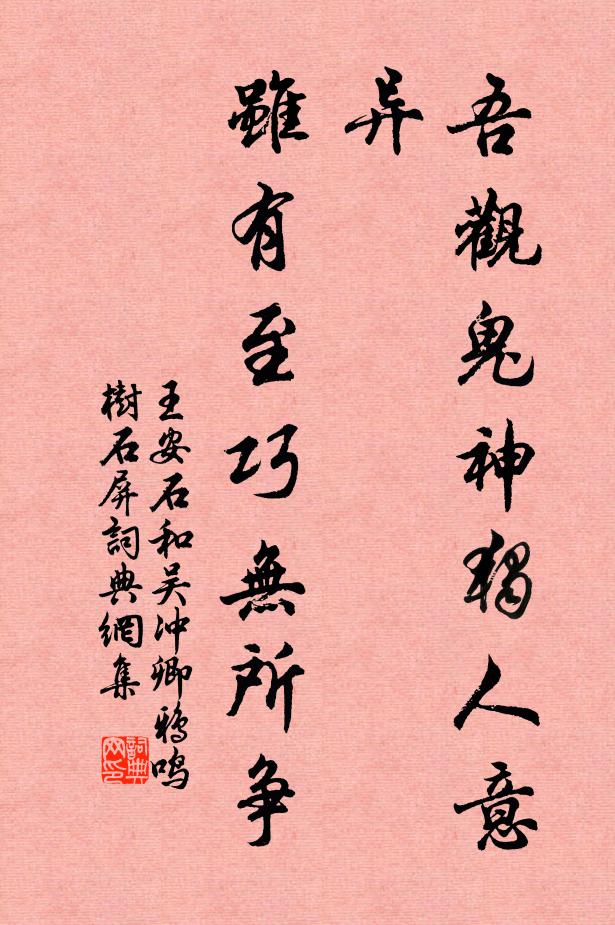 吾觀鬼神獨人意
异
雖有至巧無所争
王安石和吴冲卿鴉鳴
樹石屏詞典網集
詞典网印